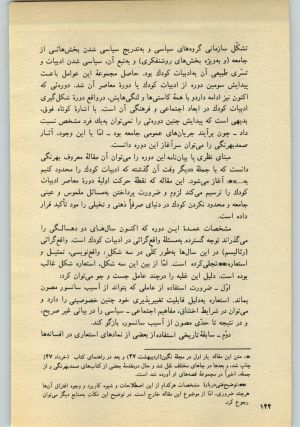 تشکّل سازمانی گروه‌های سیاسی و به‌تدریج سیاسی شدن بخش‌هائی از
جامعه (و به‌ویژه بخش‌های روشنفکری) و به‌تبع آن، سیاسی شدن ادبیات و
تسرّی طبیعی آن به‌ادبیات کودك بود. حاصل مجموعهٔ این عوامل باعث
پیدایش سومین دوره از ادبیات کودك یا دورهٔ معاصر آن شد. دوره‌ئی که
اکنون نیز ادامه دارد و با همهٔ کاستی‌ها و لنگی‌هایش، درواقع دورهٔ شکل‌گیری
ادبیات کودك در ابعاد اجتماعی و فرهنگی آن است. با اشارهٔ کوتاه فوق،
بدیهی است که پیدایش چنین دوره‌ئی را نمی‌توان به‌یك فرد مشخص نسبت
داد ـ چون برآیند جریان‌های عمومی جامعه بود ـ اما با این وجود، آثار
صمدبهرنگی را می‌توان سرآغاز این دوره دانست.
مبنای نظری یا بیان‌نامهٔ این دوره را می‌توان آن مقالهٔ معروف بهرنگی
دانست که با جملهٔ «دیگر وقت آن گذشته که ادبیات کودك را محدود کنیم
به...»* آغاز می‌شود. این مقاله که نقطهٔ حرکت اولیهٔ دورهٔ معاصر ادبیات
کودك را ترسیم می‌کند لزوم و ضرورت پرداختن به‌مسائل ملموس و عینی
جامعه و محدود نکردن کودك در دنیای صرفاً ذهنی و تخیلی را مورد تأکید قرار
داده است.
مشخصات عمدهٔ این دوره که اکنون سال‌های دو دهسالگی را
می‌گذراند توجه گسترده به‌مسئلهٔ واقع‌گرائی در ادبیات کودك است. واقع‌گرائی
(رئالیسم) در این سال‌ها به‌طور کلّی در سه شکل: واقع‌نویسی، تمثیل و
استعاره** تجلّی کرده است. امّا از بین این سه شکل، استعاره شکل غالب
بوده است. دلیل این غلبه را درچند عامل جست و جو می‌توان کرد:
اوّل ـ ضرورت استفاده از عاملی که بتواند از آسیب سانسور مصون
بماند. استعاره به‌دلیل قابلیت تغییرپذیری خود چنین خصوصیتی را دارد و
می‌توان در شرایط اختناق، مفاهیم اجتماعی ـ سیاسی را در بیانی غیر صریح،
و در نتیجه تا حدّی مصون از آسیب سانسور، بازگو کند.
دوّم ـ سابقهٔ تاریخی استفاده از نمادهای استعاری در افسانه‌ها
*. متن این مقاله بار اول در مجلهٔ نگین (اردیبهشت ۴۷) و بعد در راهنمای کتاب (خرداد ۴۷)
چاپ شد، و بعدها در جاهای مختلف نقل شد و حال درمقدمهٔ بعضی از کتاب‌های صمدبهرنگی و از
جمله، اخیراً در مجموعهٔ قصه‌های او آورده شده است.
**. توضیح فنی دربارهٔ مشخصات هرکدام از این اصطلاحات و شیوهٔ کاربرد و وجوه افتراق آن‌ها
هرچند ضروری، امّا از موضوع این مقاله خارج است. در توضیح این نکات به‌منابع دیگر می‌توان
رجوع کرد.
۱۴۴